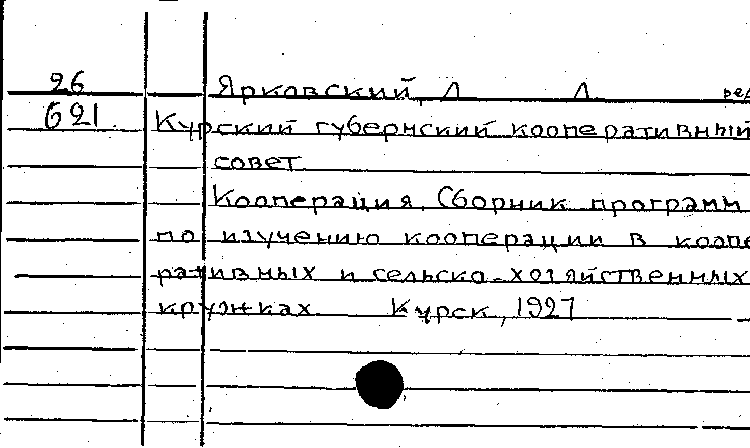 26 Ярковский, Л Л ред
621 Курский губернский кооперативный
совет
Кооперация. Сборник программ
по изучению кооперации в коопе
ративных и сельско-хозяйственных
кружках Курск, 1927